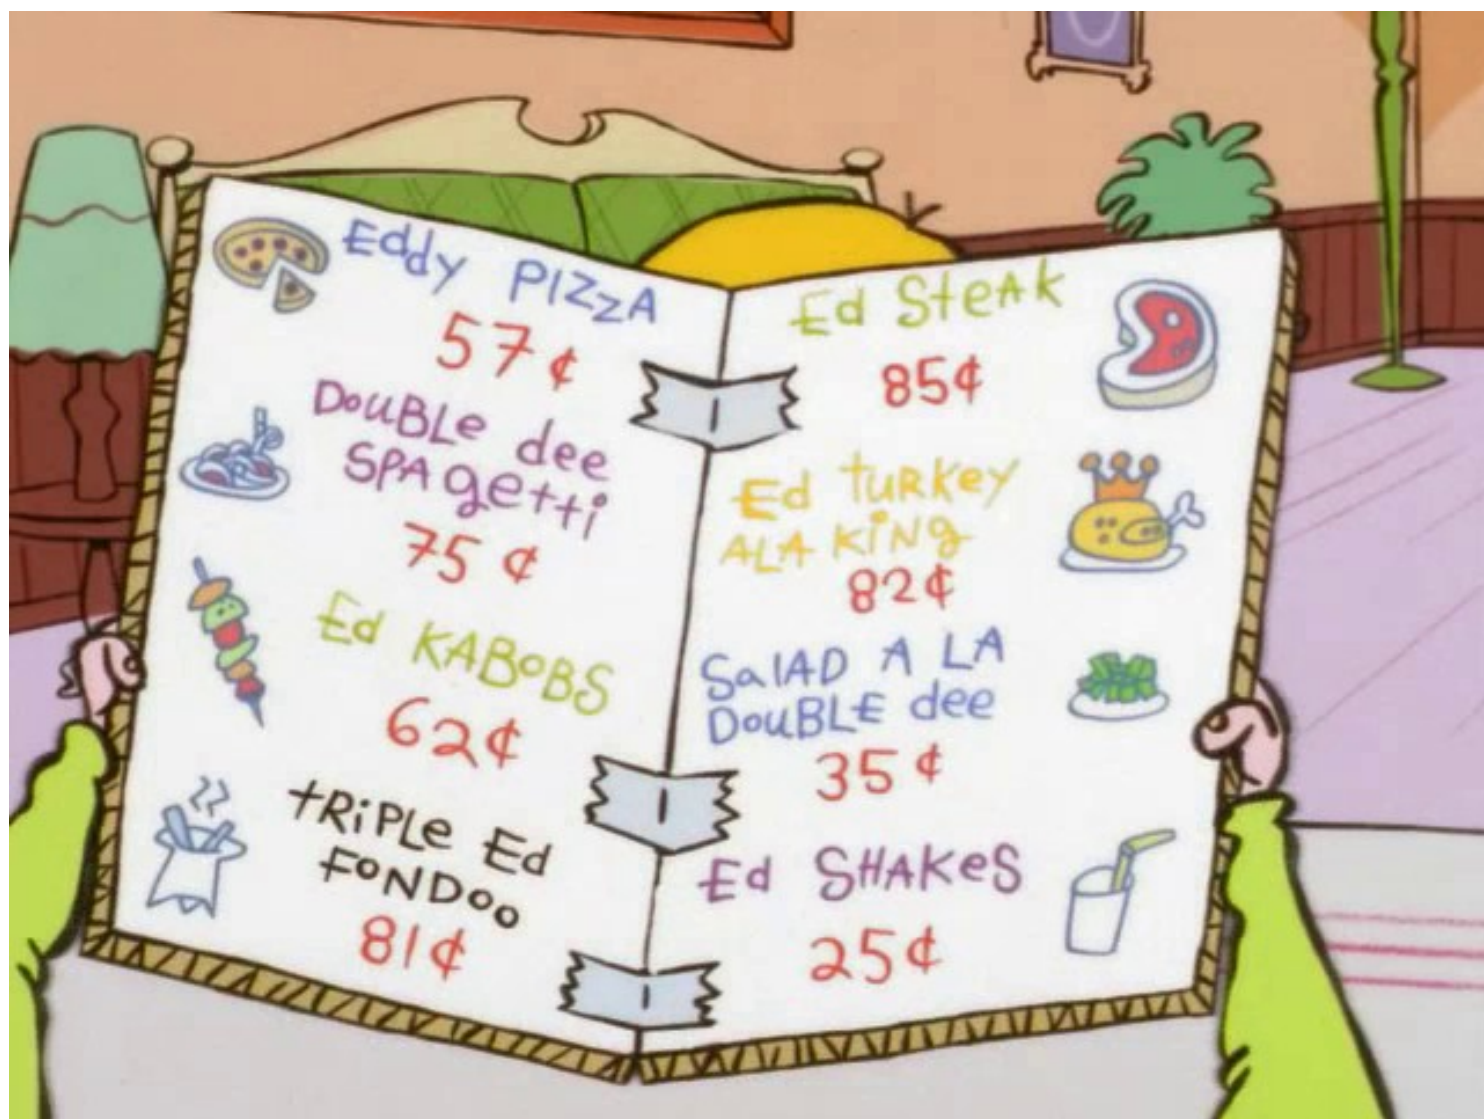 Eddy PIZZA
57¢
DouBLe dee
SPAgetti
75¢
Ed KABoBS
62¢
tRiPLe Ed
FoNDoo
81¢
Ed SteAk
85¢
Ed tuRKey
ALA KiNg
82¢
SalAD A LA
DouBLE dee
35¢
Ed SHAKeS
25¢